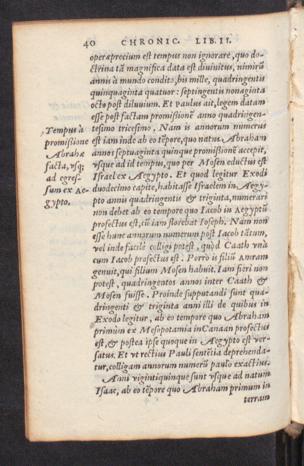 40 CHRONIC. LIB. II.
operæprecium est tempus non ignorare, quo do-
ctrina tã magnifica data est diuinitus, nimirũ
annis à mundo condito, bis mille, quadringentis
quinquaginta quatuor: septingentis nonaginta
octo post diluuium. Et Paulus ait, legem datam
esse post factam promissionẽ anno quadringen-
tesimo tricesimo. Nam is annorum numerus
est iam inde ab eo tẽpore, quo natus Abraham
annos septuaginta quinque promissionẽ accepit,
vsque ad id tempus, quo per Mosen eductus est
Israel ex Aegypto. Et quod legitur Exodi
duodecimo capite, habitasse Israelem in Aegy-
pto annis quadringentis & triginta, numerari
non debet ab eo tempore quo Iacob in Aegyptũ
profectus est, cũ iam florebat Ioseph. Nam non
esse hunc annorum numerum post Iacob tãtum,
vel inde facilè colligi potest, quòd Caath vnà
cum Iacob profectus est. Porrò is filiũ Amram
genuit, qui filium Mosen habuit. Iam fieri non
potest, quadringentos annos inter Caath &
Mosen fuisse. Proinde supputandi sunt qua-
dringenti & triginta anni illi de quibus in
Exodo legitur, ab eo tempore quo Abraham
primùm ex Mesopotamia in Canaan profectus
est, & postea ipse quoque in Aegypto est ver-
satus. Et vt rectius Pauli sentẽtia deprehenda-
tur, colligam annorum numerũ paulo exactius.
Anni vigintiquinque sunt vsque ad natum
Isaac, ab eo tẽpore quo Abraham primum in
terram
Tempus à
promissione
Abrahæ
facta, vsq;
ad egres-
sum ex Ae-
gypto.